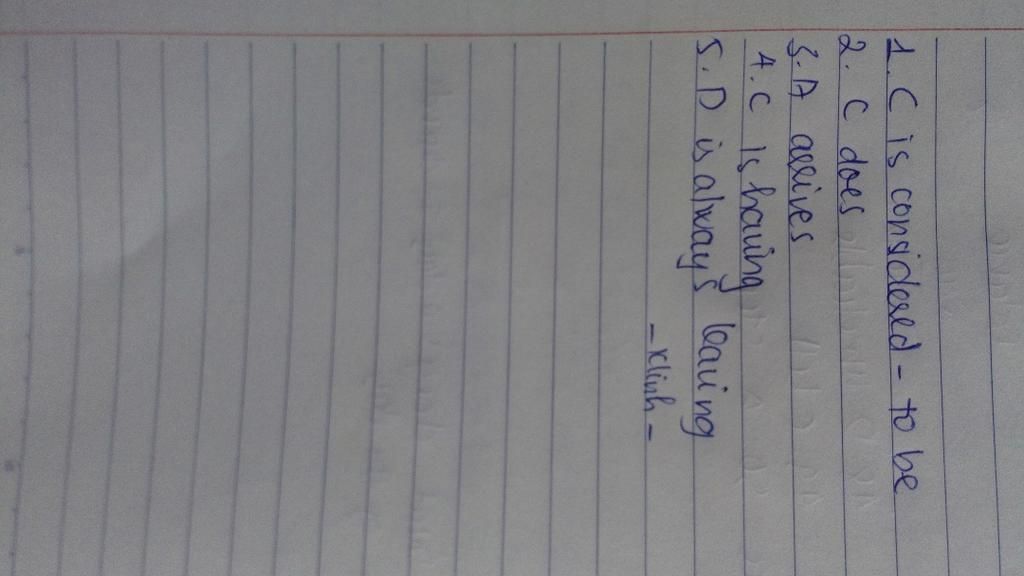 1. C is considered - to be
2. C does
3. A arrives
4. C is having
5. D is always leaving
- Klinh -